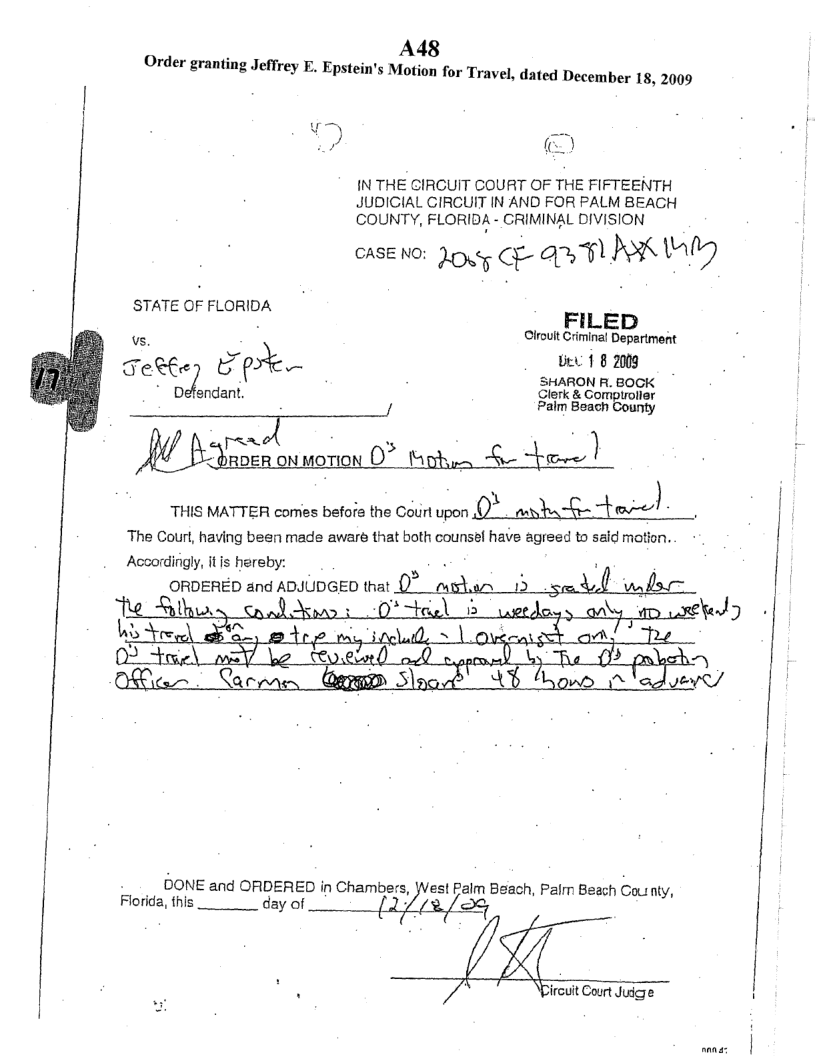 A48
Order granting Jeffrey E. Epstein's Motion for Travel, dated December 18, 2009
IN THE CIRCUIT COURT OF THE FIFTEENTH
JUDICIAL CIRCUIT IN AND FOR PALM BEACH
COUNTY, FLORIDA - CRIMINAL DIVISION
CASE NO: 2008 CF 9381 AXX MB
STATE OF FLORIDA
vs.
Jeffrey Epstein
Defendant.
FILED
Circuit Criminal Department
DEC 18 2009
SHARON R. BOCK
Clerk & Comptroller
Palm Beach County
17
Agreed
ORDER ON MOTION D's Motion for travel
THIS MATTER comes before the Court upon D's motion for travel.
The Court, having been made aware that both counsel have agreed to said motion..
Accordingly, it is hereby:
ORDERED and ADJUDGED that D's motion is granted under
the following conditions: D's travel is weedays only, no weekends
his travel on any trip my include 1 overnight only. The
D's travel must be reviewed and approved by the D's probation
Officer Carmen Sloane 48 hours in advance
DONE and ORDERED in Chambers, West Palm Beach, Palm Beach County,
Florida, this ______ day of 12/18/09
Circuit Court Judge